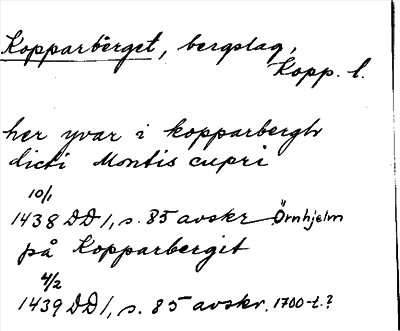 Kopparbärget, bergslag,
Kopp. l.
her yvar i kopparbergh
dicti Montis cupri
10/1
1438 DD 1, s. 85 avskr Örnhjelm
på Kopparbergit
4/2
1439 DD 1, s. 85 avskr. 1700-t.?